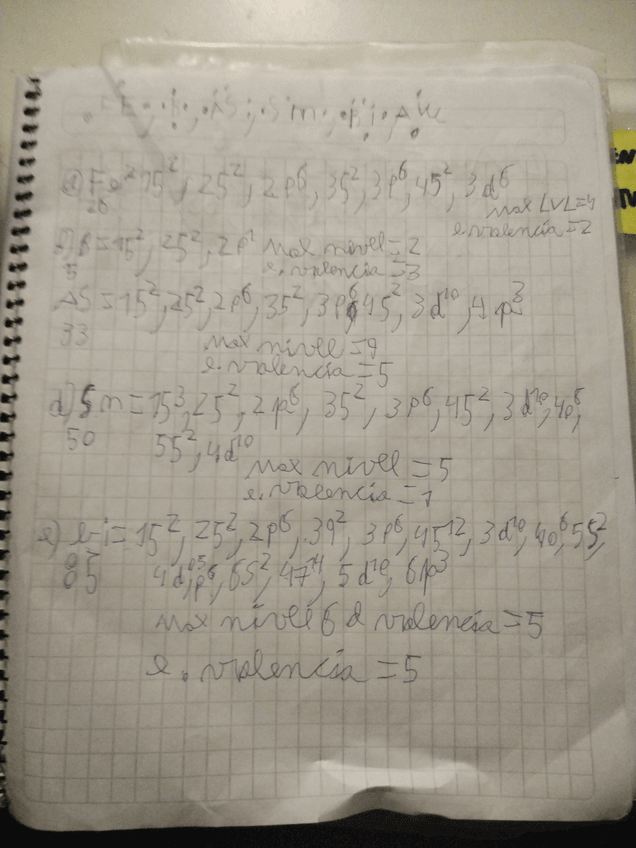 . F E . , . B . , . AS : , . S m . , . B i . , A u
a) Fe² 1S², 2S², 2p⁶, 3S², 3p⁶, 4S², 3d⁶
26
max LvL = 4
e. valencia = 2
b) B = 1S², 2S², 2p¹ max nivel = 2
5 e. valencia = 3
AS = 1S², 2S², 2p⁶, 3S², 3p⁶, 4S², 3d¹⁰, 4p³
33 max nivel = 4
e. valencia = 5
d) Sn = 1S³, 2S², 2p⁶, 3S², 3p⁶, 4S², 3d¹⁰, 4p⁶,
50 5S², 4d¹⁰
max nivel = 5
e. valencia = 1
e) bi = 1S², 2S², 2p⁶, 39², 3p⁶, 4S¹², 3d¹⁰, 4p⁶, 5S²,
85 4d, p⁶, 6S², 4714, 5d¹⁰, 6p³
max nivel 6 d valencia = 5
e. valencia = 5
EN